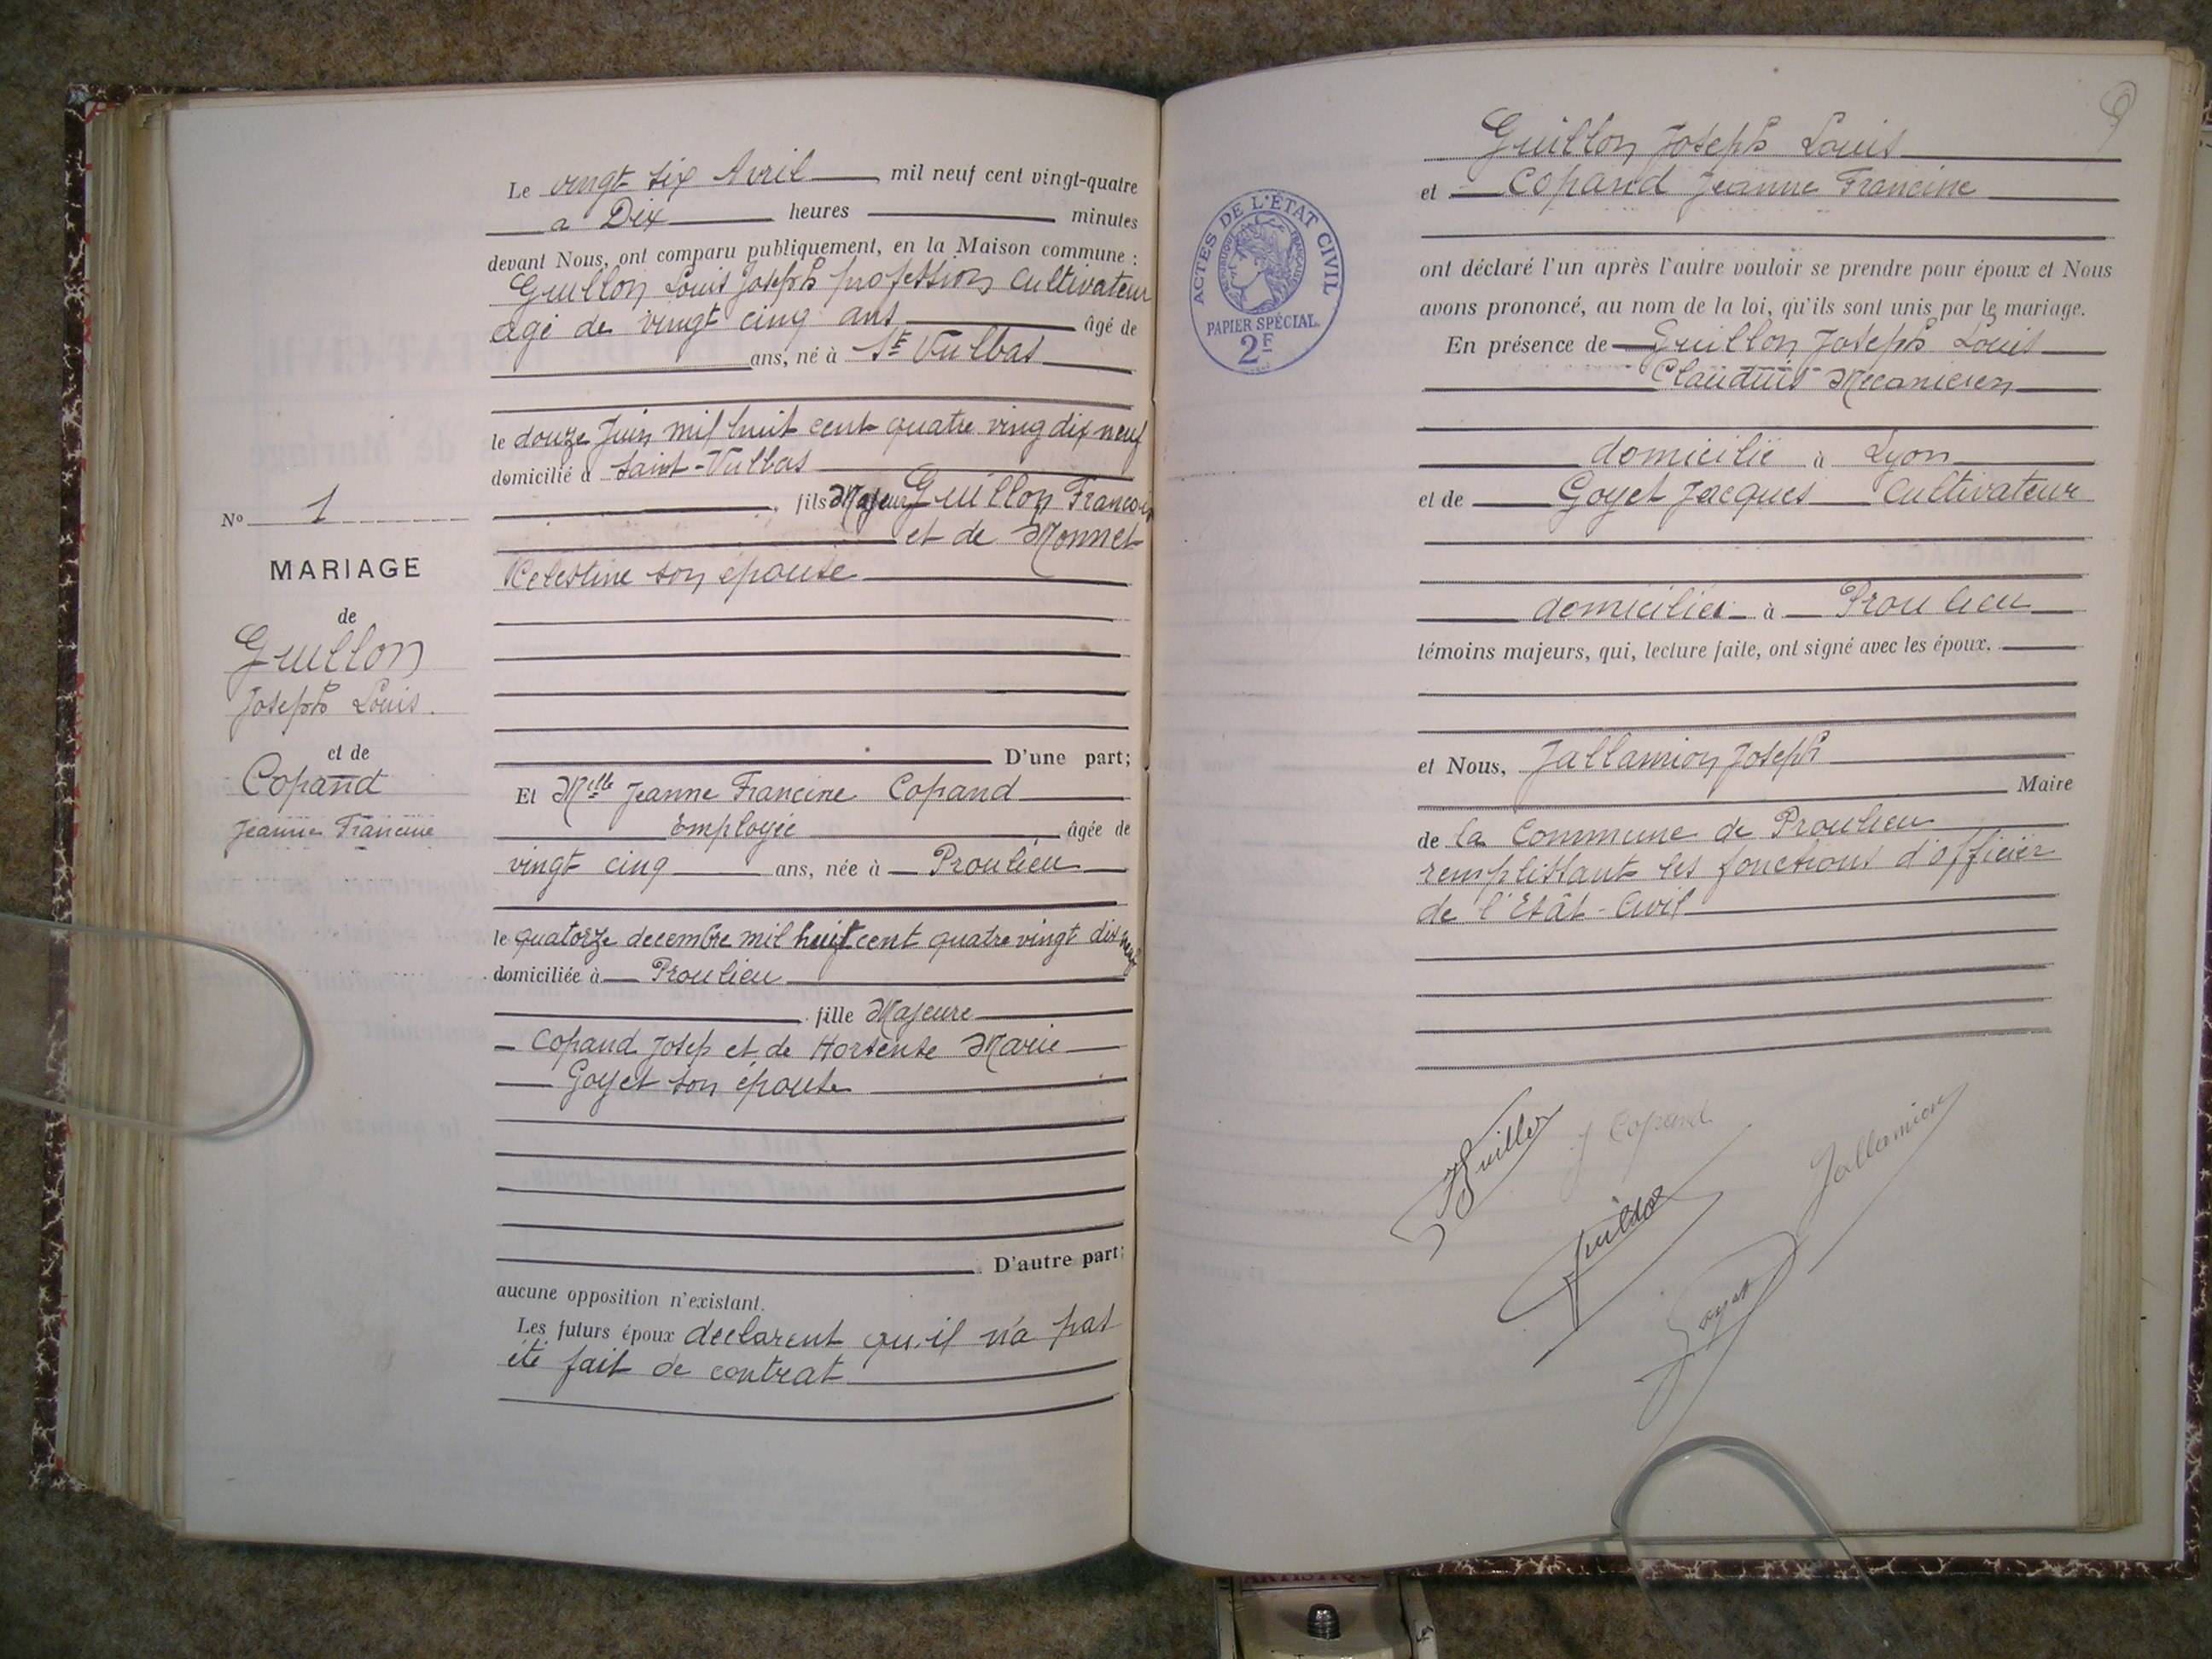 N° 1
MARIAGE
de
Guillon
Joseph Louis.
et de
Copand
Jeanne Francine
Le vingt six Avril mil neuf cent vingt-quatre
a Dix heures minutes
devant Nous, ont comparu publiquement, en la Maison commune :
Guillon Louis Joseph profession Cultivateur
agé de vingt cinq ans âgé de
ans, né à St Vulbas
le douze Juin mil huit cent quatre ving dix neuf
domicilié à Saint-Vulbas
fils Majeur Guillon Francois
et de Monnet
Celestine son épouse
D'une part;
Et Mlle Jeanne Francine Copand
Employée âgée de
vingt cinq ans, née à Proulieu
le quatorze decembre mil huit cent quatre vingt dix neuf
domiciliée à Proulieu
fille Majeure
Copand Josep et de Hortense Marie
Goyet son épouse
D'autre part;
aucune opposition n'existant.
Les futurs époux declarent qu'il n'a pas
été fait de contrat
ACTES DE L'ÉTAT CIVIL
RÉPUBLIQUE FRANÇAISE
PAPIER SPÉCIAL
2F
Guillon Joseph Louis
et Copand Jeanne Francine
ont déclaré l'un après l'autre vouloir se prendre pour époux et Nous
avons prononcé, au nom de la loi, qu'ils sont unis par le mariage.
En présence de Guillon Joseph Louis
Claudius Mecanicien
domicilié à Lyon
et de Goyet Jacques Cultivateur
domiciliés à Proulieu
témoins majeurs, qui, lecture faite, ont signé avec les époux.
et Nous, Jallamion Joseph
Maire
de la Commune de Proulieu
remplissant les fonctions d'officier
de l'Etât-Civil
Guillon
J Copand
Jallamion
Guillon
Goyet